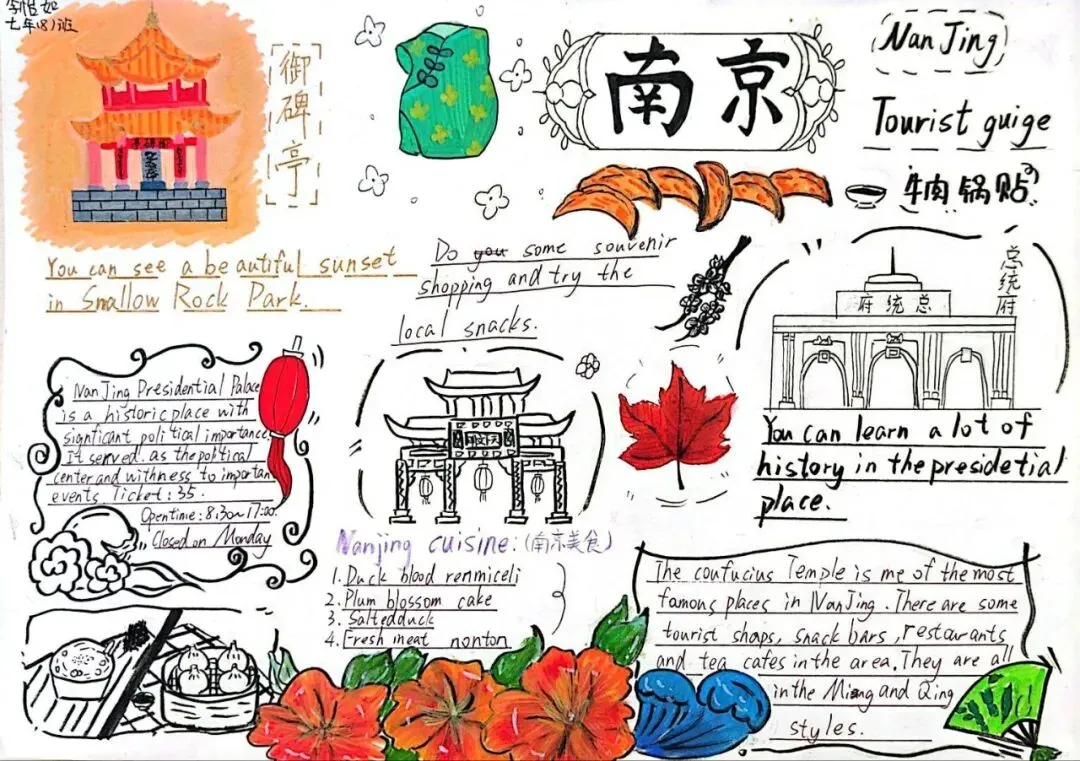 七年(8)班
御碑亭
南京
NanJing
Tourist guige
牛肉锅贴
You can see a beautiful sunset
in Smallow Rock Park.
Do you some souvenir
shopping and try the
local snacks.
总统府
府统总
You can learn a lot of
history in the presidetial
place.
NanJing Presidential Palace
is a historic place with
significant political importance.
It served as the political
center and withness to important
events Ticket: 35.
Opentime: 8:30~17:00.
Closed on Monday
天下文
Nanjing cuisine: (南京美食)
1. Duck blood renmiceli
2. Plum blossom cake
3. Salted duck
4. Fresh meat nonton
The coufucius Temple is me of the most
famous places in NanJing. There are some
tourist shaps, snack bars, restaurants
and tea cafes in the area. They are all
in the Miang and Qing
styles.